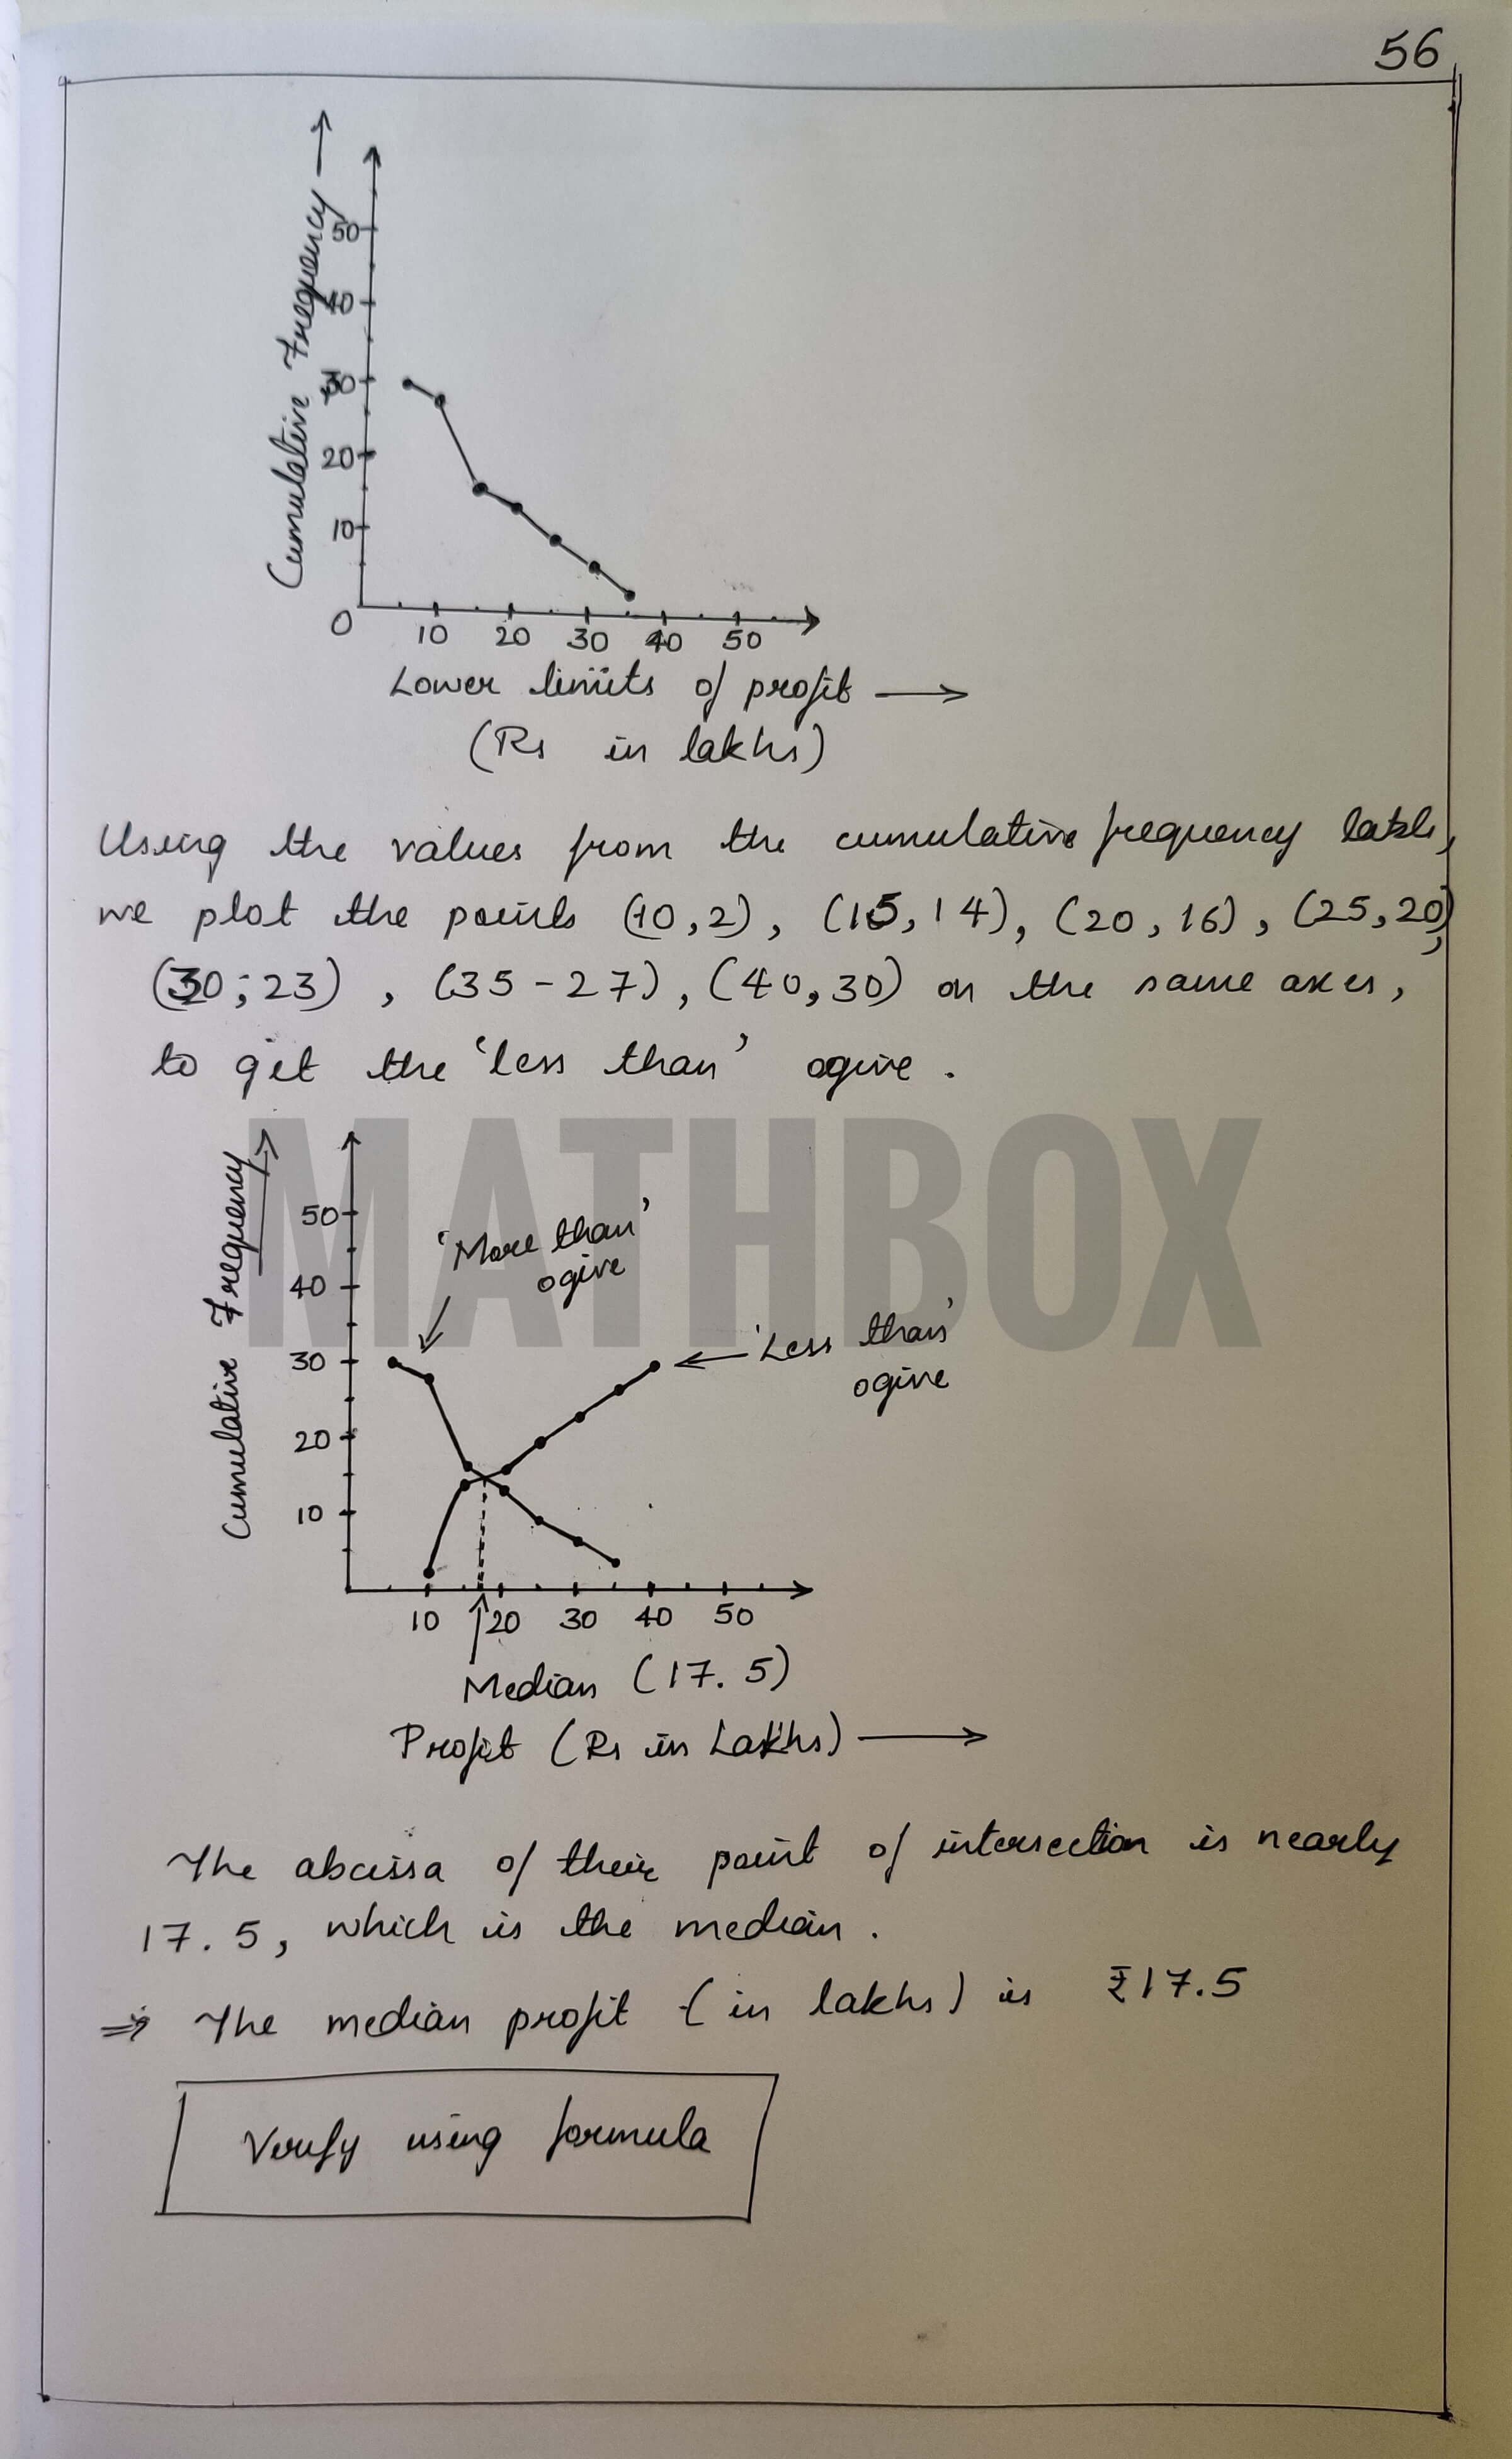 56
Cumulative Frequency
50
40
30
20
10
0
10 20 30 40 50
Lower limits of profit
(Rs in lakhs)
Using the values from the cumulative frequency table,
we plot the points (10,2), (15,14), (20,16), (25,20),
(30;23), (35-27), (40,30) on the same axes,
to get the 'less than' ogive.
MATHBOX
Cumulative Frequency
50
40
30
20
10
'More than'
ogive
'Less than'
ogive
10 20 30 40 50
Median (17.5)
Profit (Rs in Lakhs)
The abcissa of their point of intersection is nearly
17.5, which is the median.
⇒ The median profit (in lakhs) is ₹17.5
Verify using formula